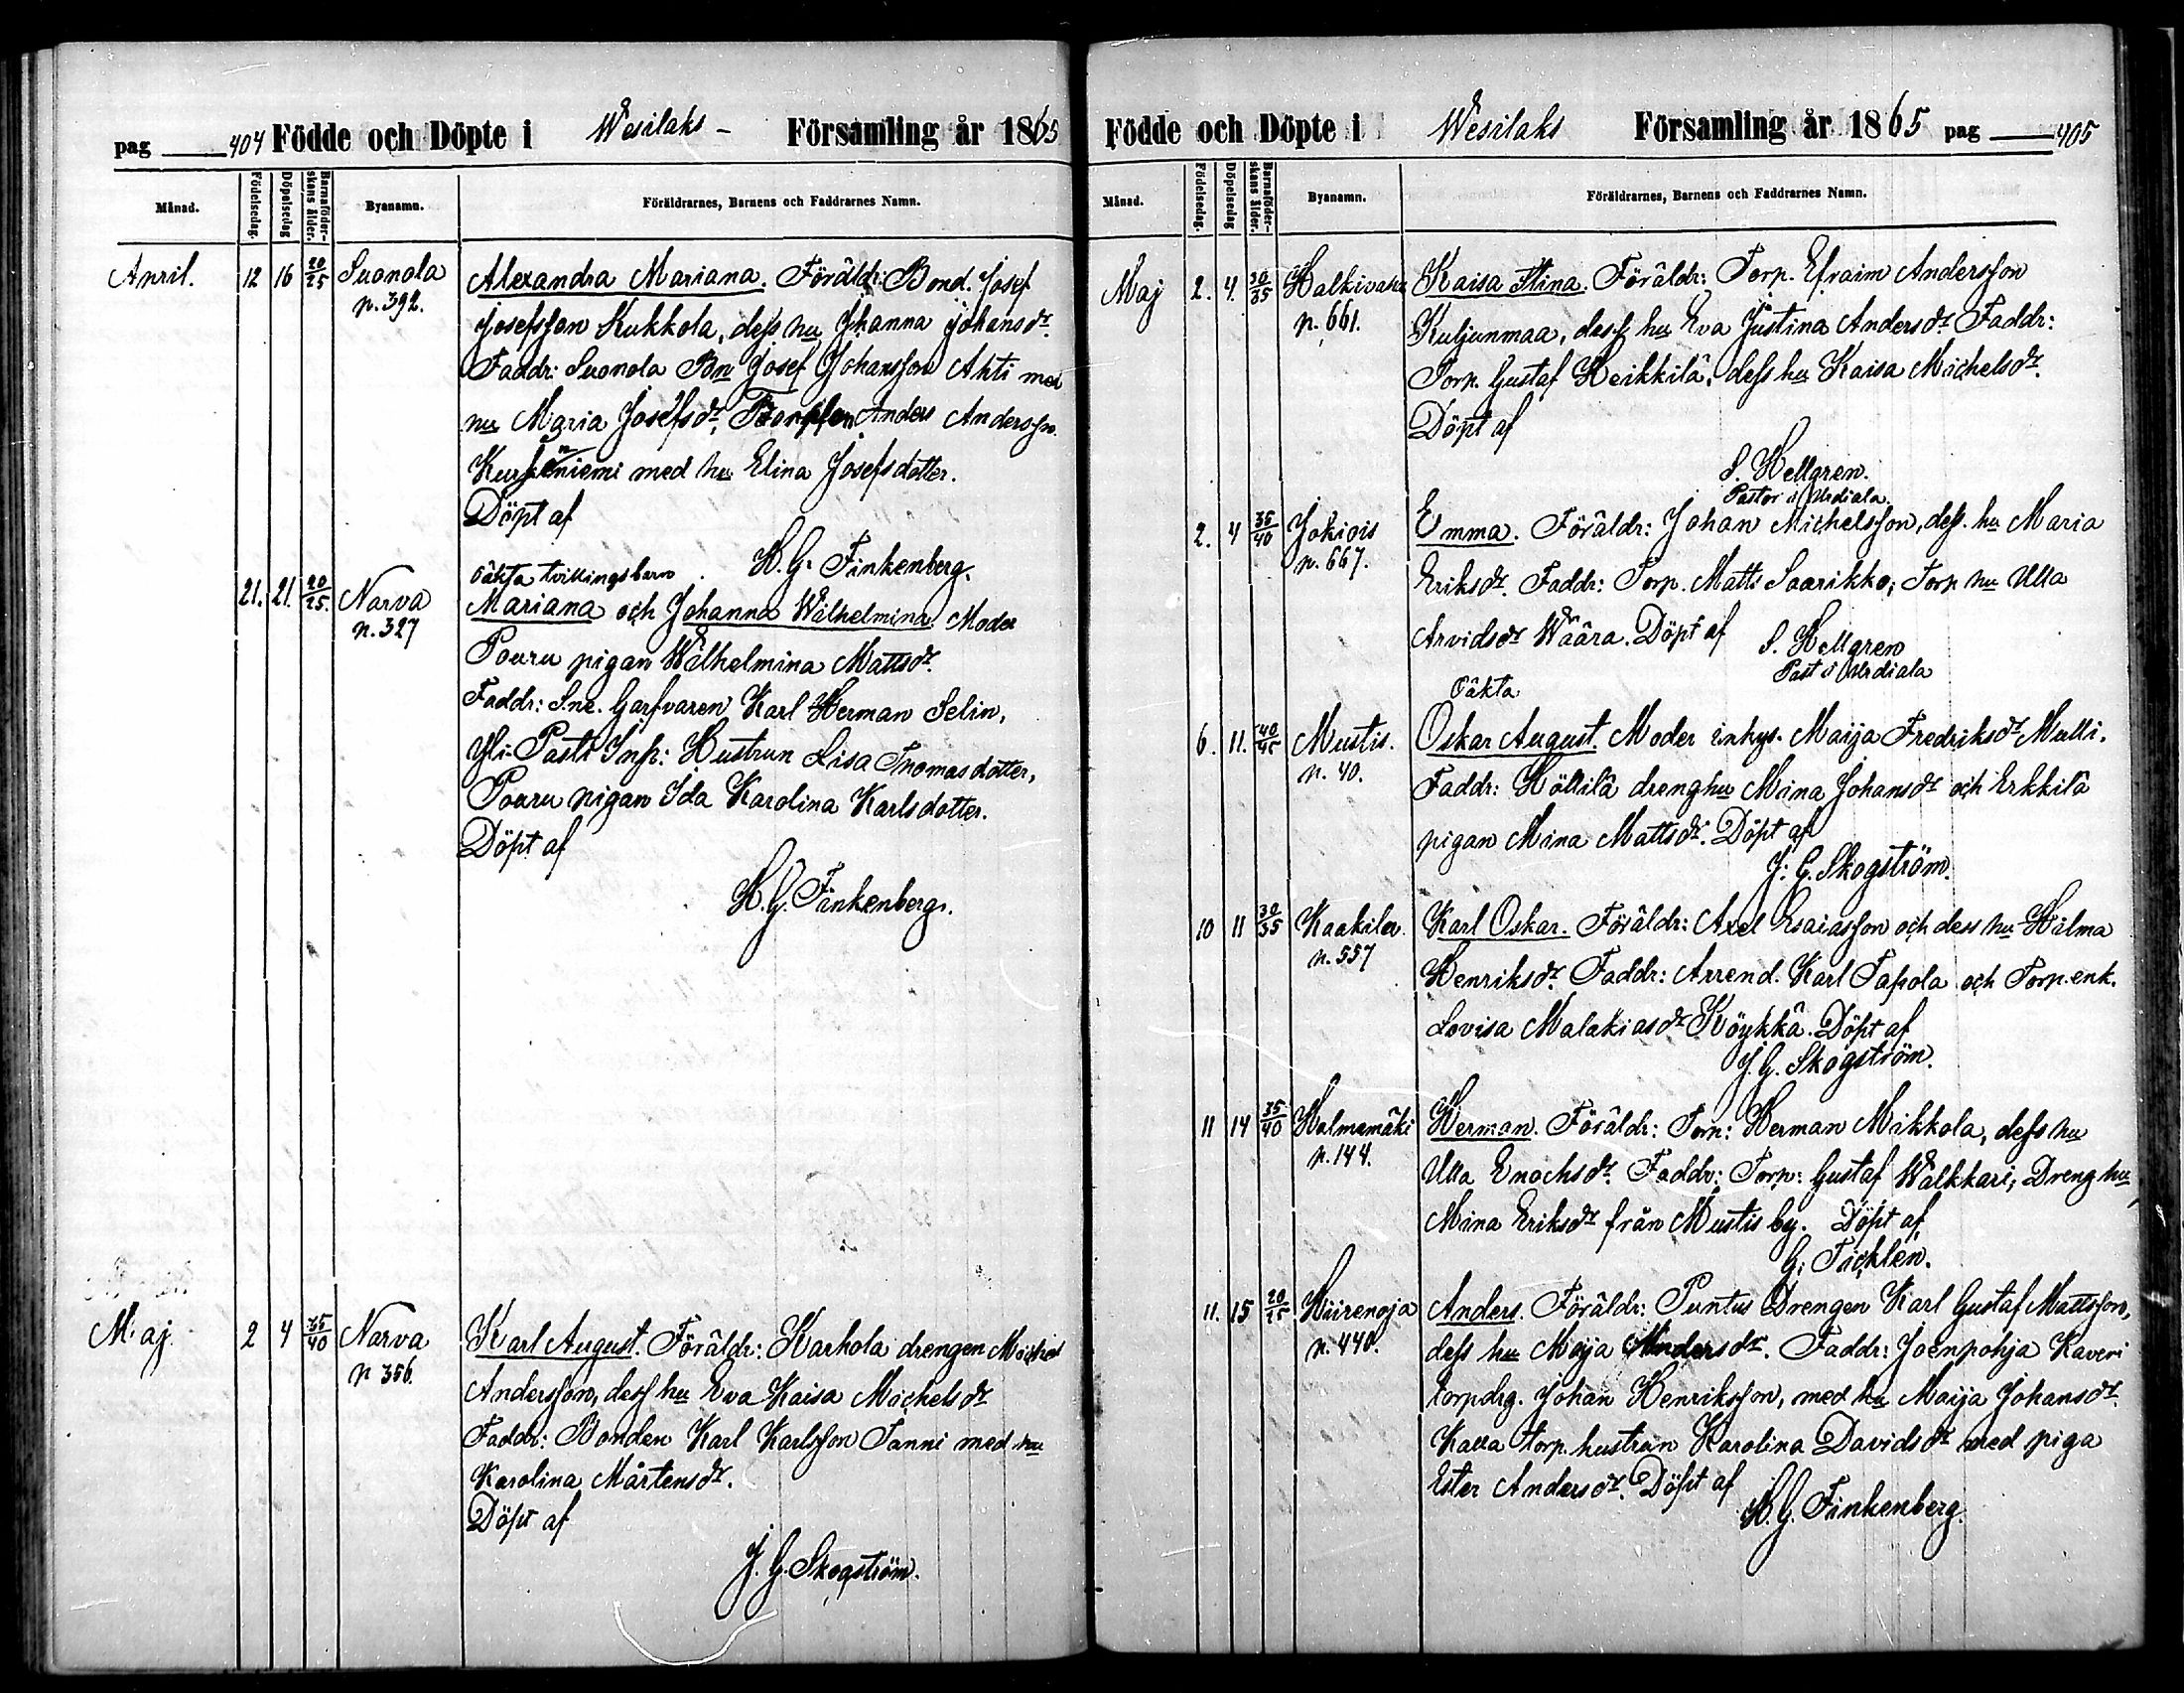 pag 404 Födde och Döpte i Wesilaks - Församling år 1865
Månad. Födelsedag. Döpelsedag Barnaföderskans ålder. Byanamn. Föräldrarnes, Barnens och Faddrarnes Namn.
April. 12 16 20/25 Suonola Alexandra Mariana. Föräldr: Bond. Josef
p. 392. Josefsson Kukkola, dess hu Johanna Johansdr.
Faddr: Suonola Bn Josef Johansson Ahti med
hu Maria Josefsdr, Anders Andersson
Kurkeniemi med hu Elina Josefsdotter.
Döpt af
H. G. Finkenberg.
oäkta tvillingsbarn
21. 21. 20/25. Narva Mariana och Johanna Wilhelmina. Moder
p. 327 Pouru pigan Wilhelmina Mattsdr.
Faddr: Sne. Garfvaren Karl Herman Selin,
Yli-Pasti Inh: Hustrun Lisa Thomasdotter,
Pouru pigan Ida Karolina Karlsdotter.
Döpt af
H. G. Finkenberg.
Maj 2 4 35/40 Narva Karl August. Föräldr: Karhola drengen Michel
p 356. Andersson, dess hu Eva Kaisa Michelsdr
Faddr: Bonden Karl Karlsson Tanni med hu
Karolina Mårtensdr.
Döpt af
J. G. Skogström.
Födde och Döpte i Wesilaks Församling år 1865 pag 405
Månad. Födelsedag. Döpelsedag Barnaföderskans ålder. Byanamn. Föräldrarnes, Barnens och Faddrarnes Namn.
Maj 2. 4. 30/35 Halkivaha Kaisa Stina. Föräldr: Torp. Efraim Andersson
p. 661. Kuljunmaa, dess hu Eva Justina Andersdr. Faddr:
Torp. Gustaf Heikkilä, dess hu Kaisa Michelsdr.
Döpt af
S. Hellgren.
Pastor i Urdiala.
2. 4 35/40 Jokiois Emma. Föräldr: Johan Michelsson, dess hu Maria
p. 667. Eriksdr. Faddr: Torp. Matti Saarikko, Torp hu Ulla
Arvidsdr Wäära. Döpt af S. Hellgren
Past i Urdiala
Oäkta
6. 11. 40/45 Mustis. Oskar August. Moder inhys. Maija Fredriksdr Mulli.
p. 40. Faddr: Höllilä drenghu Mina Johansdr och Erkkilä
pigan Mina Mattsdr. Döpt af
J. G. Skogström.
10 11 30/35 Kaakila. Karl Oskar. Föräldr: Axel Esaiasson och dess hu Hilma
p. 557 Henriksdr. Faddr: Arrend. Karl Tapola och Torp.enk.
Lovisa Malakiasdr Köykkä. Döpt af
J. G. Skogström.
11 14 35/40 Halmemäki Herman. Föräldr: Torp: Herman Mikkola, dess hu
p. 144. Ulla Enochsdr. Faddr: Torp: Gustaf Walkkari, Dreng hu
Mina Eriksdr från Mustis by. Döpt af
G. Täcklen.
11. 15 20/25 Hiirenoja Anders. Föräldr: Puntus Drengen Karl Gustaf Mattsson,
p. 440. dess hu Maija Andersdr. Faddr: Joenpohja Kaveri
torpdrg. Johan Henriksson, med hu Maija Johansdr.
Kalla torp. hustrun Karolina Davidsdr med piga
Ester Andersdr. Döpt af
H. G. Finkenberg.